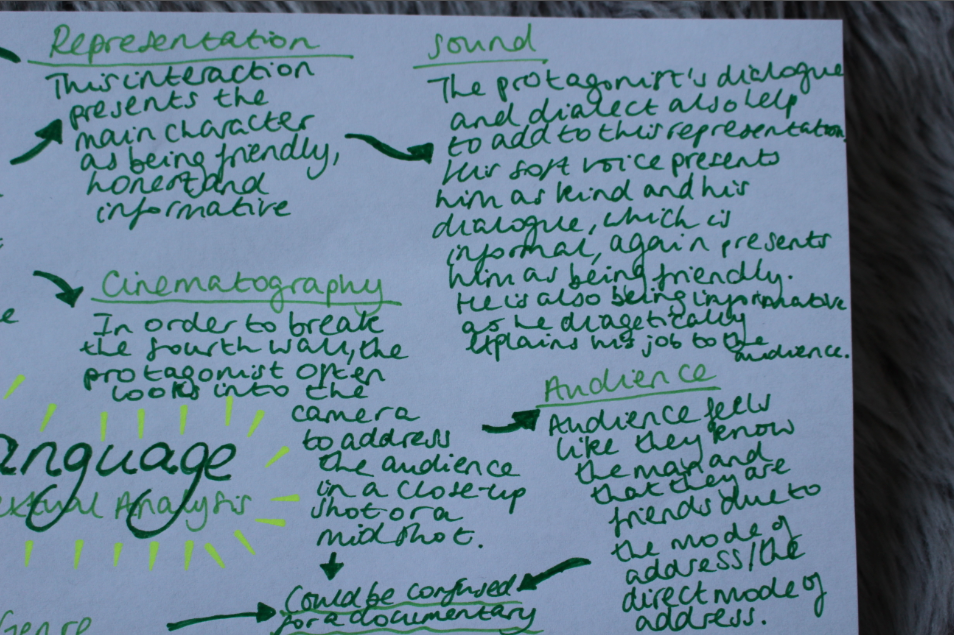 Representation
This interaction
presents the
main character
as being friendly,
honest and
informative
sound
The protagonist's dialogue
and dialect also help
to add to this representation.
His soft voice presents
him as kind and his
dialogue, which is
informal, again presents
him as being friendly.
He is also being informative
as he diagetically
explains his job to the
audience.
Cinematography
In order to break
the fourth wall, the
protagonist often
looks into the
camera
to address
the audience
in a close-up
shot or a
mid shot.
Audience
Audience feels
like they know
the man and
that they are
friends due to
the mode of
address/the
direct mode of
address.
anguage
extual Analysis
Could be confused
for a documentary
Genre